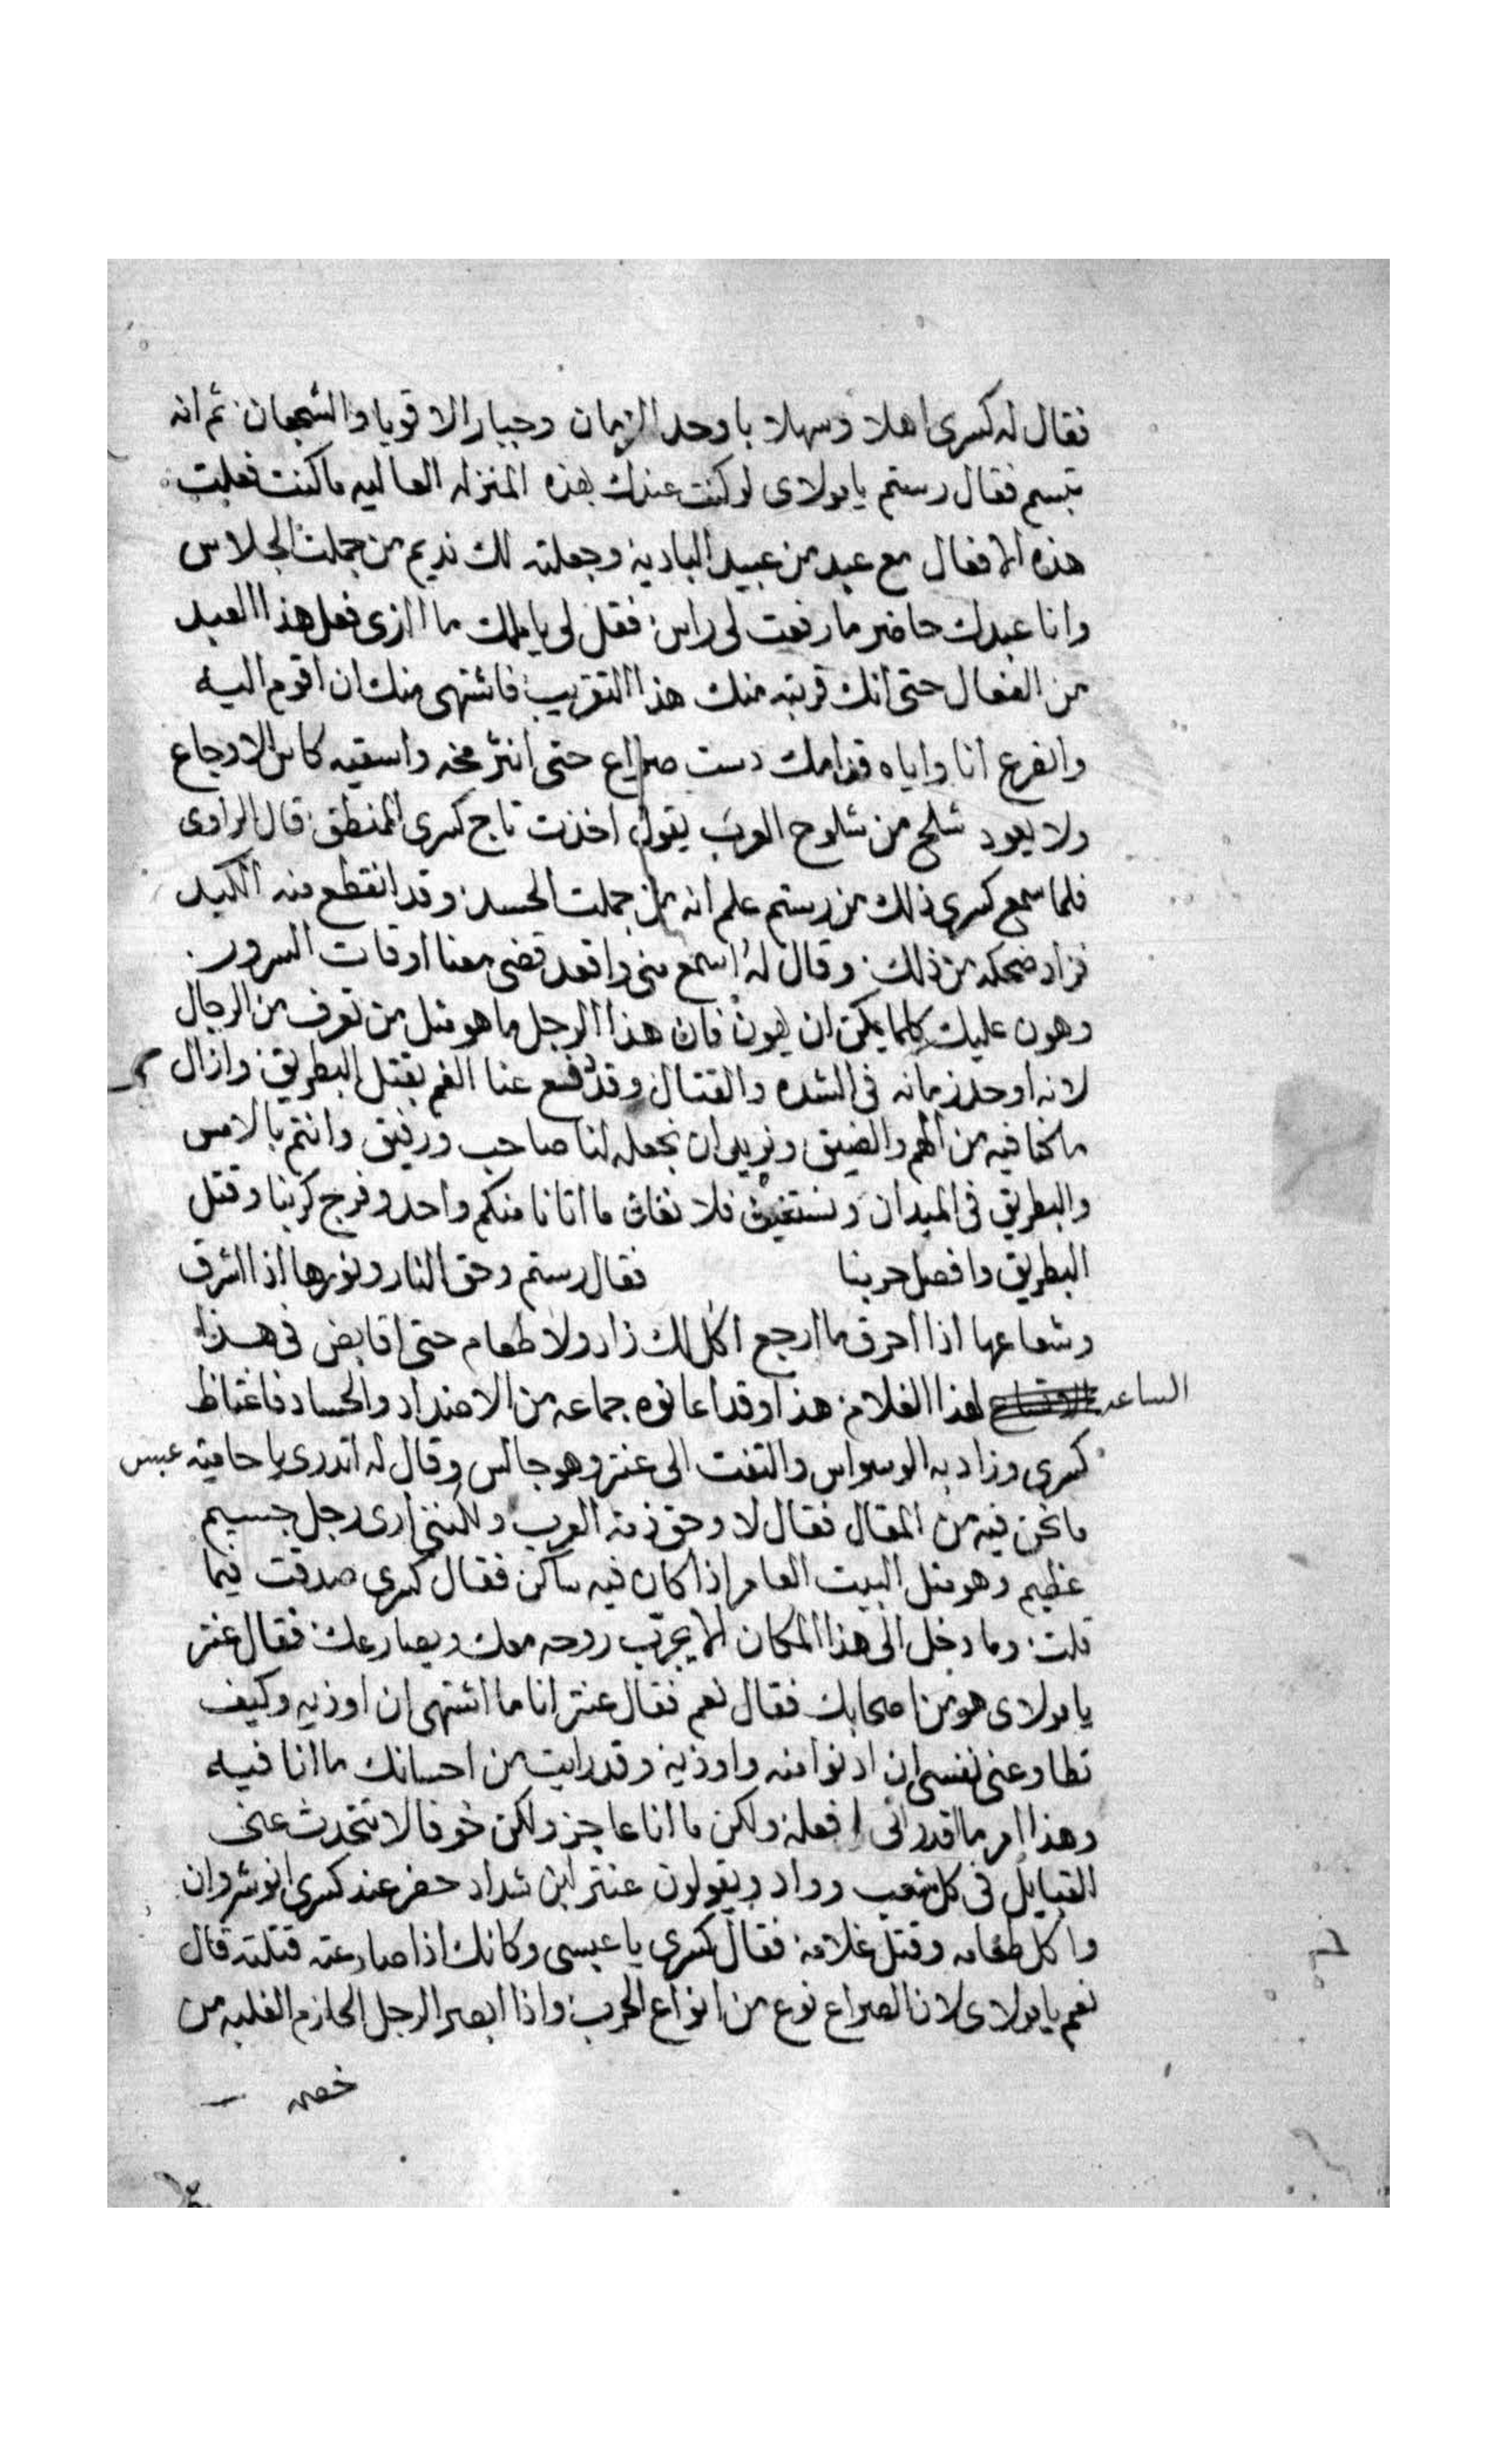 فقال له كسرى اهلا وسهلا باوحد الزمان وجبار الاقويا والشجعان ثم انه
تبسم فقال رستم يا مولاى لو كنت عندك بهذه المنزله العاليه ما كنت فعلت
هذه الافعال مع عبد من عبيد البادية وجعلته لك نديم من جملت الجلاس
وانا عبدك حاضر ما رفعت لى راس فقل لى يا ملك ما الذى فعل هذا العبد
من الفعال حتى انك قربته منك هذا التقريب فاشتهى منك ان اقوم اليه
وانفرع انا واياه قدامك دست صراع حتى انثر مخه واسقيه كاس الاوجاع
ولا يعود شلح من شلوح العرب يقول اخذت تاج كسرى المنطق قال الراوى
فلما سمع كسرى ذلك من رستم علم انه من جملت الحسد وقد انقطع منه الكبد
فزاد ضحكه من ذلك وقال له اسمع منى واقعد قضى معنا اوقات السرور
وهون عليك كلما يمكن ان يهون فان هذا الرجل ما هو مثل من تعرف من الرجال
لانه اوحد زمانه فى الشده والقتال وقد رفع عنا الغم بقتل البطريق وازال
ما كنا فيه من الهم والضيق ونريد ان نجعله لنا صاحب ورفيق وانتم بالامس
والبطريق فى الميدان ونستغيث فلا نغاث ما اتانا منكم واحد وفرج كربنا وقتل
البطريق وافصل حربنا فقال رستم وحق النار ونورها اذا اشرق
وشعاعها اذا احرق ما ارجع اكل لك زاد ولا طعام حتى اقابض فى هذا
الساعه لهذا الغلام هذا وقد اعانوه جماعه من الاضداد والحساد فاغتاظ
كسرى وزاد به الوسواس والتفت الى عنتر وهو جالس وقال له اتدرى يا حامية عبس
ما نحن فيه من المقال فقال لا وحق ذمة العرب ولكننى ارى رجل جسيم
عظيم وهو مثل البيت العامر اذا كان فيه ساكن فقال كسرى صدقت فيما
قلت وما دخل الى هذا المكان الا يجرّب روحه معك ويصارعك فقال عنتر
يا مولاى هو من اصحابك فقال نعم فقال عنتر انا ما اشتهى ان اوذيه وكيف
تطاوعنى نفسى ان ادنوا منه واوذيه وقد رايت من احسانك ما انا فيه
وهذا امر ما اقدر انى افعله ولكن ما انا عاجز ولكن خوفا لا تتحدث عنى
القبايل فى كل شعب وواد ويقولون عنتر ابن شداد حضر عند كسرى انوشروان
واكل طعامه وقتل غلامه فقال كسرى يا عبسى وكانك اذا صارعته قتلته قال
نعم يا مولاى لان الصراع نوع من انواع الحرب واذا ابصر الرجل الحازم الغلبه من
خصمه